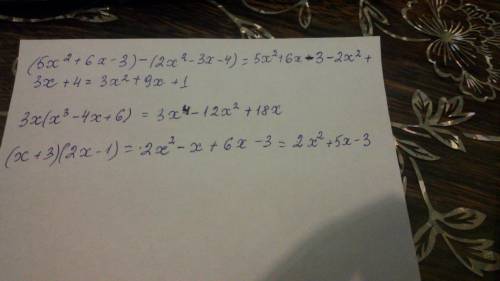 (5x²+6x-3)-(2x²-3x-4)=5x²+6x-3-2x²+
3x+4=3x²+9x+1
3x(x³-4x+6)=3x⁴-12x²+18x
(x+3)(2x-1)=2x²-x+6x-3=2x²+5x-3